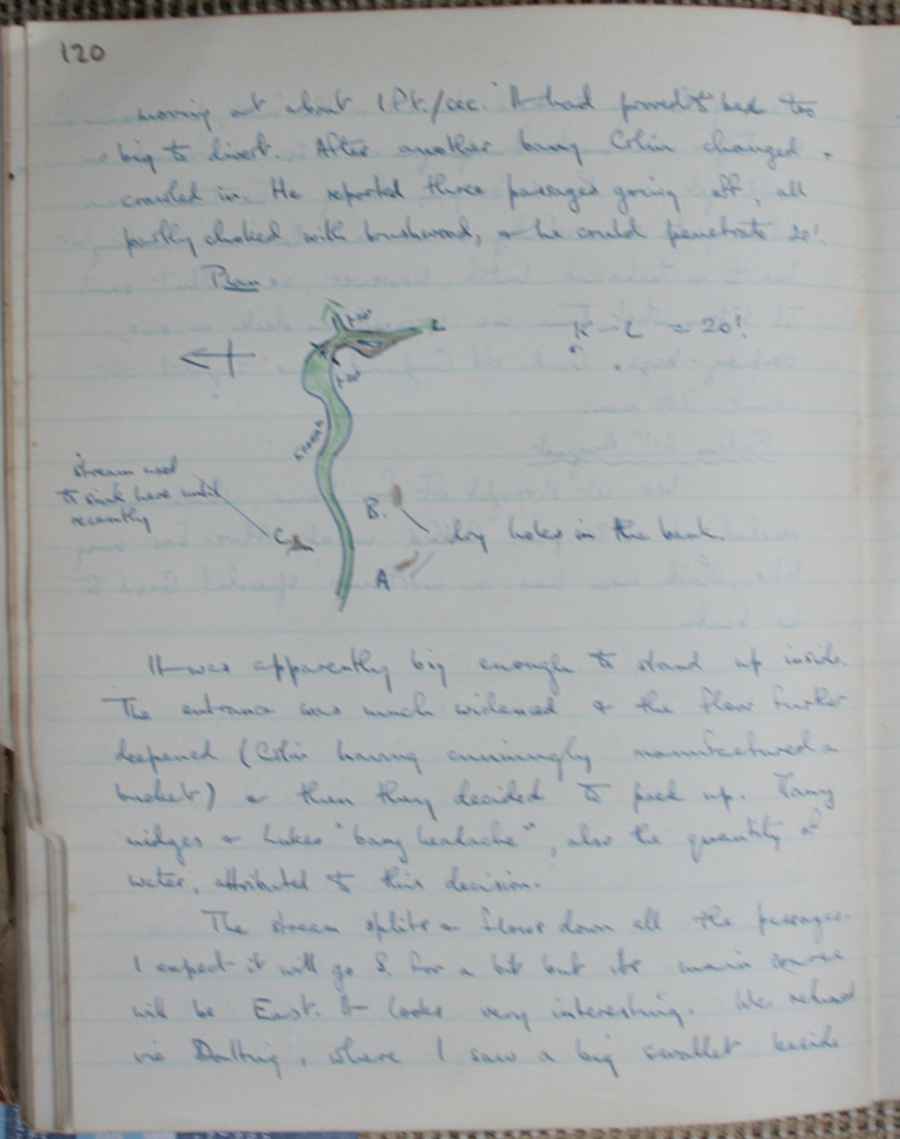 120
moving at about 1 ft./sec. It had proved to be too
big to divert. After another bang Colin changed &
crawled in. He reported three passages going off, all
partly choked with brushwood, & he could penetrate 20'.
Plan
L
K – L = 20'.
stream
stream used
to sink here until
recently
B.
C
dry holes in the bank.
A
It was apparently big enough to stand up inside.
The entrance was much widened & the floor further
deepened (Colin having cunningly manufactured a
bucket) & then they decided to pack up. Many
midges & Luke's "bang headache", also the quantity of
water, attributed to this decision.
The stream splits & flows down all the passages.
I expect it will go S for a bit but its main course
will be East. It looks very interesting. We returned
via Doulting, where I saw a big swallet beside